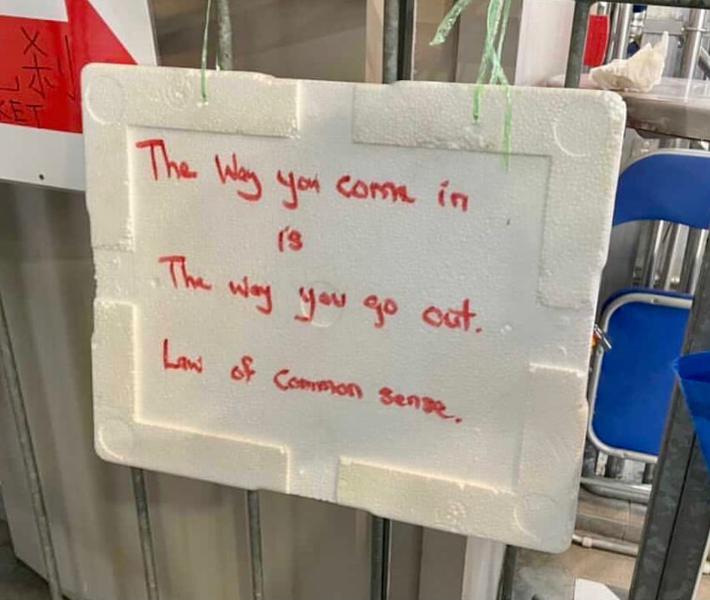 The Way you come in
is
The way you go out.
Law of Common sense.
KET